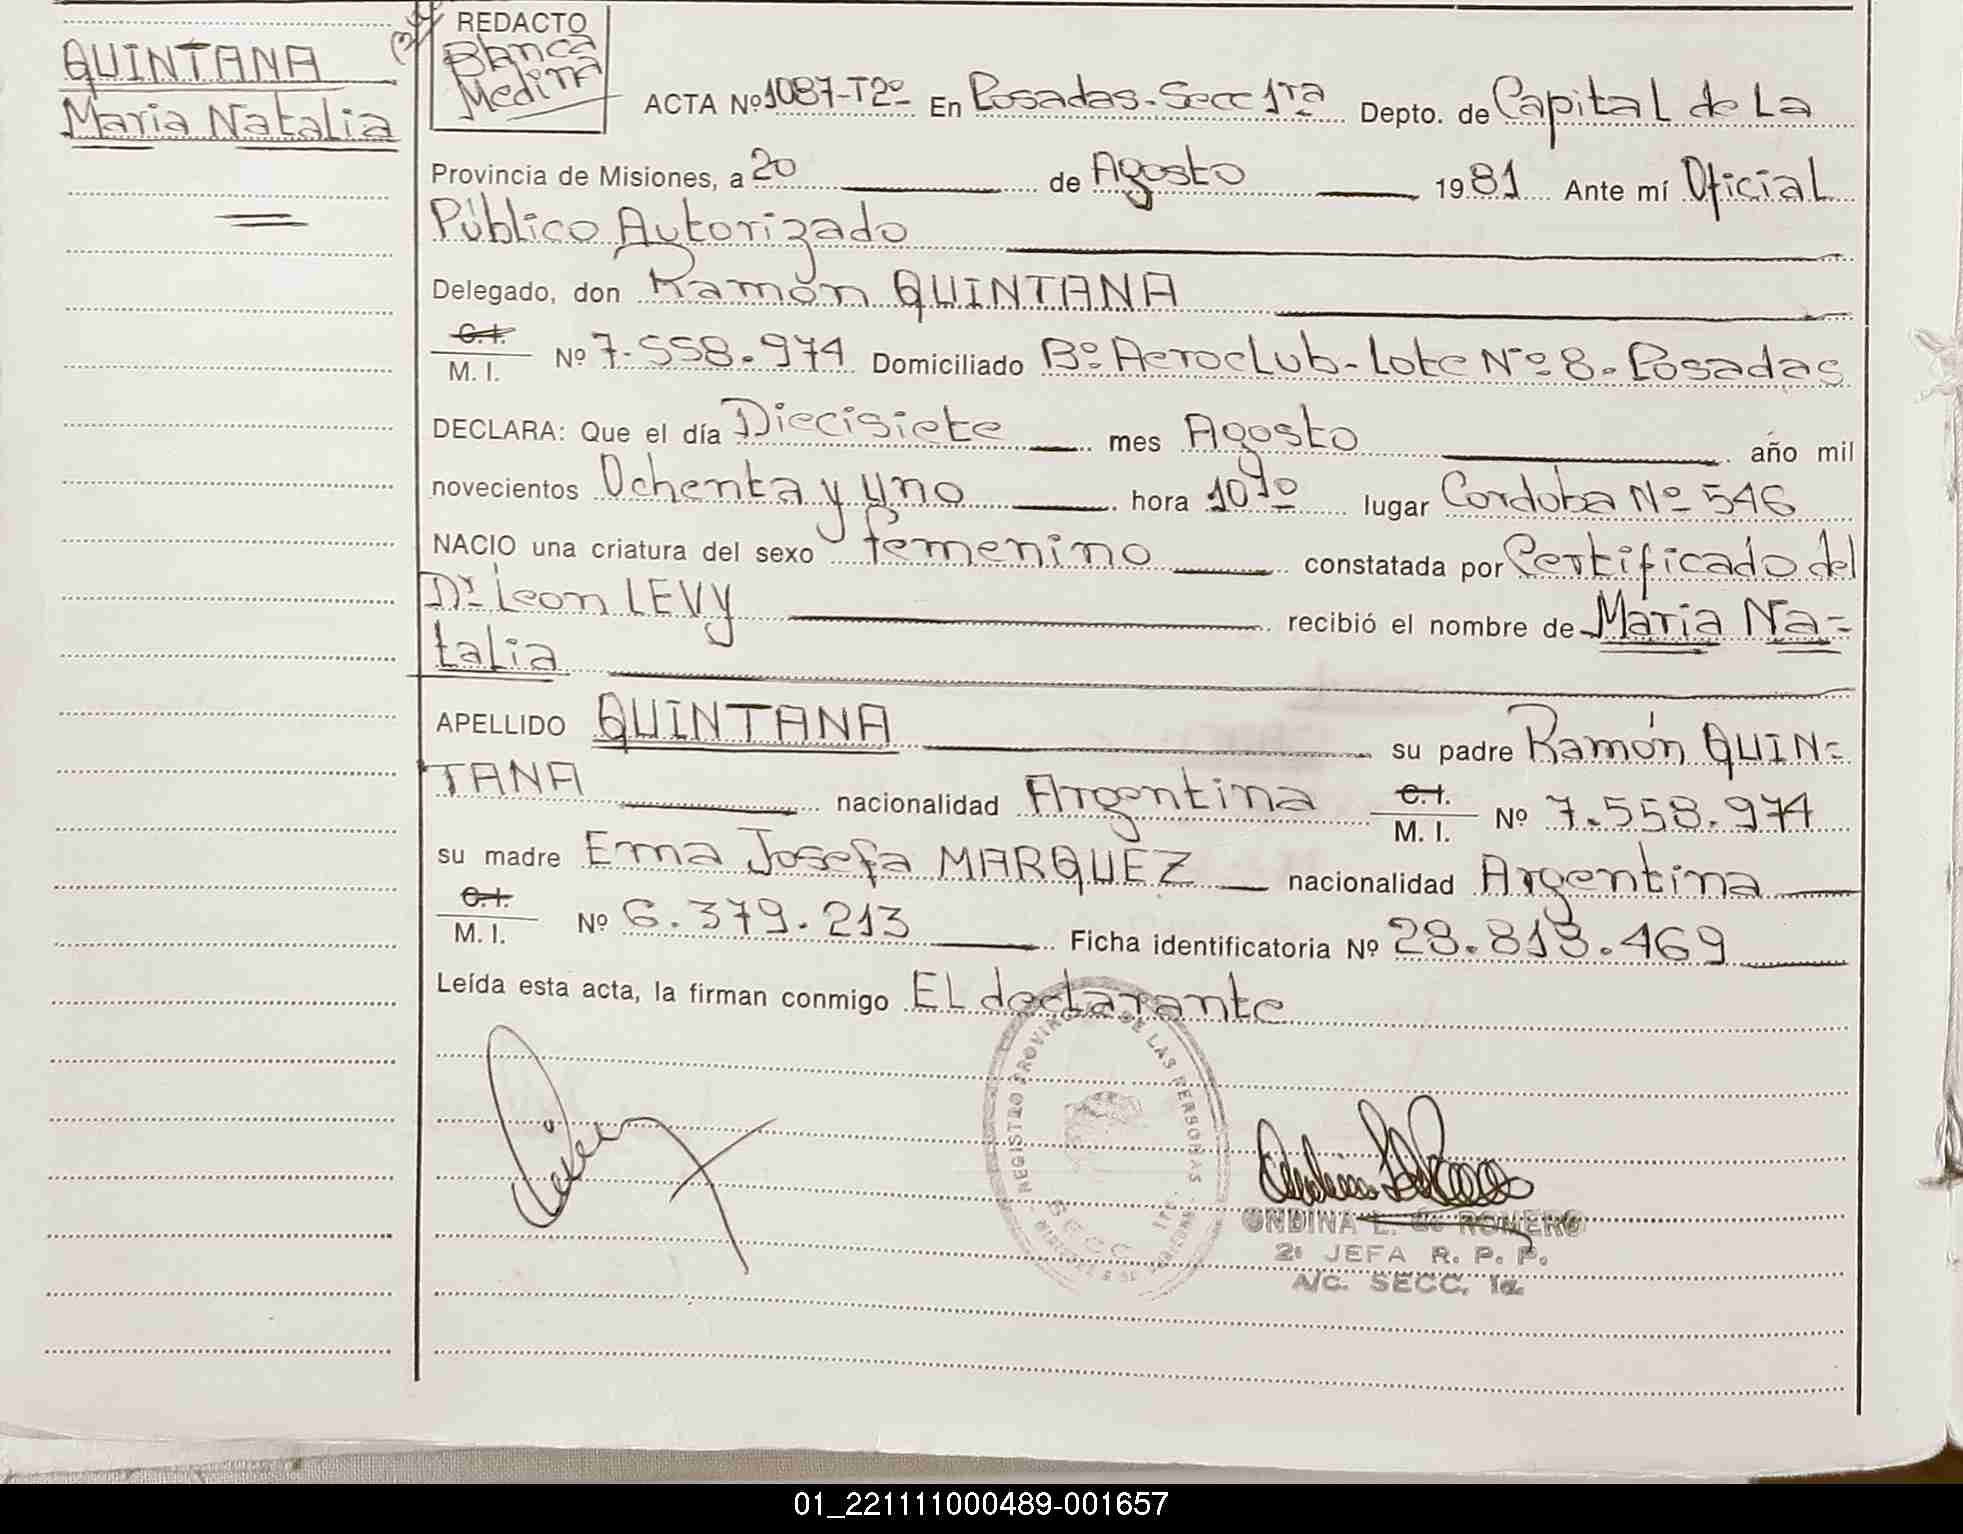 QUINTANA
Maria Natalia
REDACTO
Blanca
Medina
ACTA Nº 1087-T2º En Posadas-Secc 1ra Depto. de Capital de La
Provincia de Misiones, a 20 de Agosto 1981 Ante mí Oficial
Público Autorizado
Delegado, don Ramón QUINTANA
C.I.
M. I. Nº 7.558.974 Domiciliado Bº Aeroclub-Lote Nº 8. Posadas
DECLARA: Que el día Diecisiete mes Agosto año mil
novecientos Ochenta y uno hora 10 lugar Cordoba Nº 546
NACIO una criatura del sexo femenino constatada por Certificado del
Dr. Leon LEVY recibió el nombre de Maria Na=
talia
APELLIDO QUINTANA su padre Ramón QUIN=
TANA nacionalidad Argentina C.I. M. I. Nº 7.558.974
su madre Ema Josefa MARQUEZ nacionalidad Argentina
C.I.
M. I. Nº 6.379.213 Ficha identificatoria Nº 28.813.469
Leída esta acta, la firman conmigo EL declarante
REGISTRO PROVINCIAL DE LAS PERSONAS
SECC 1ra.
ONDINA L. de ROMERO
2º JEFA R. P. P.
A/C. SECC. 1a.
01_221111000489-001657